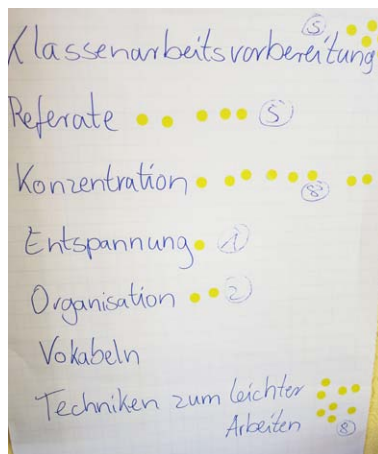 Klassenarbeitsvorbereitung 5
Referate 5
Konzentration 8
Entspannung 1
Organisation 2
Vokabeln
Techniken zum leichter
Arbeiten 8